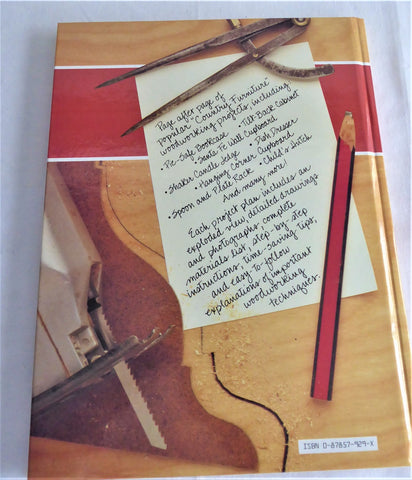 Page after page of
popular "Country Furniture"
woodworking projects including
• Pie-Safe Bookcase • Tilt-Back Cabinet
• Santa Fe Wall Cupboard
Shaker Candle Ledge • Fish Dresser
• Hanging Corner Cupboard
Spoon and Plate Rack • Child's Hutch
And many more!
Each project plan includes an
exploded view, detailed drawings
and photographs, complete
materials list, step-by-step
instructions, time-saving tips,
and easy-to-follow
explanations of important
woodworking
techniques.
ISBN 0-87857-929-X